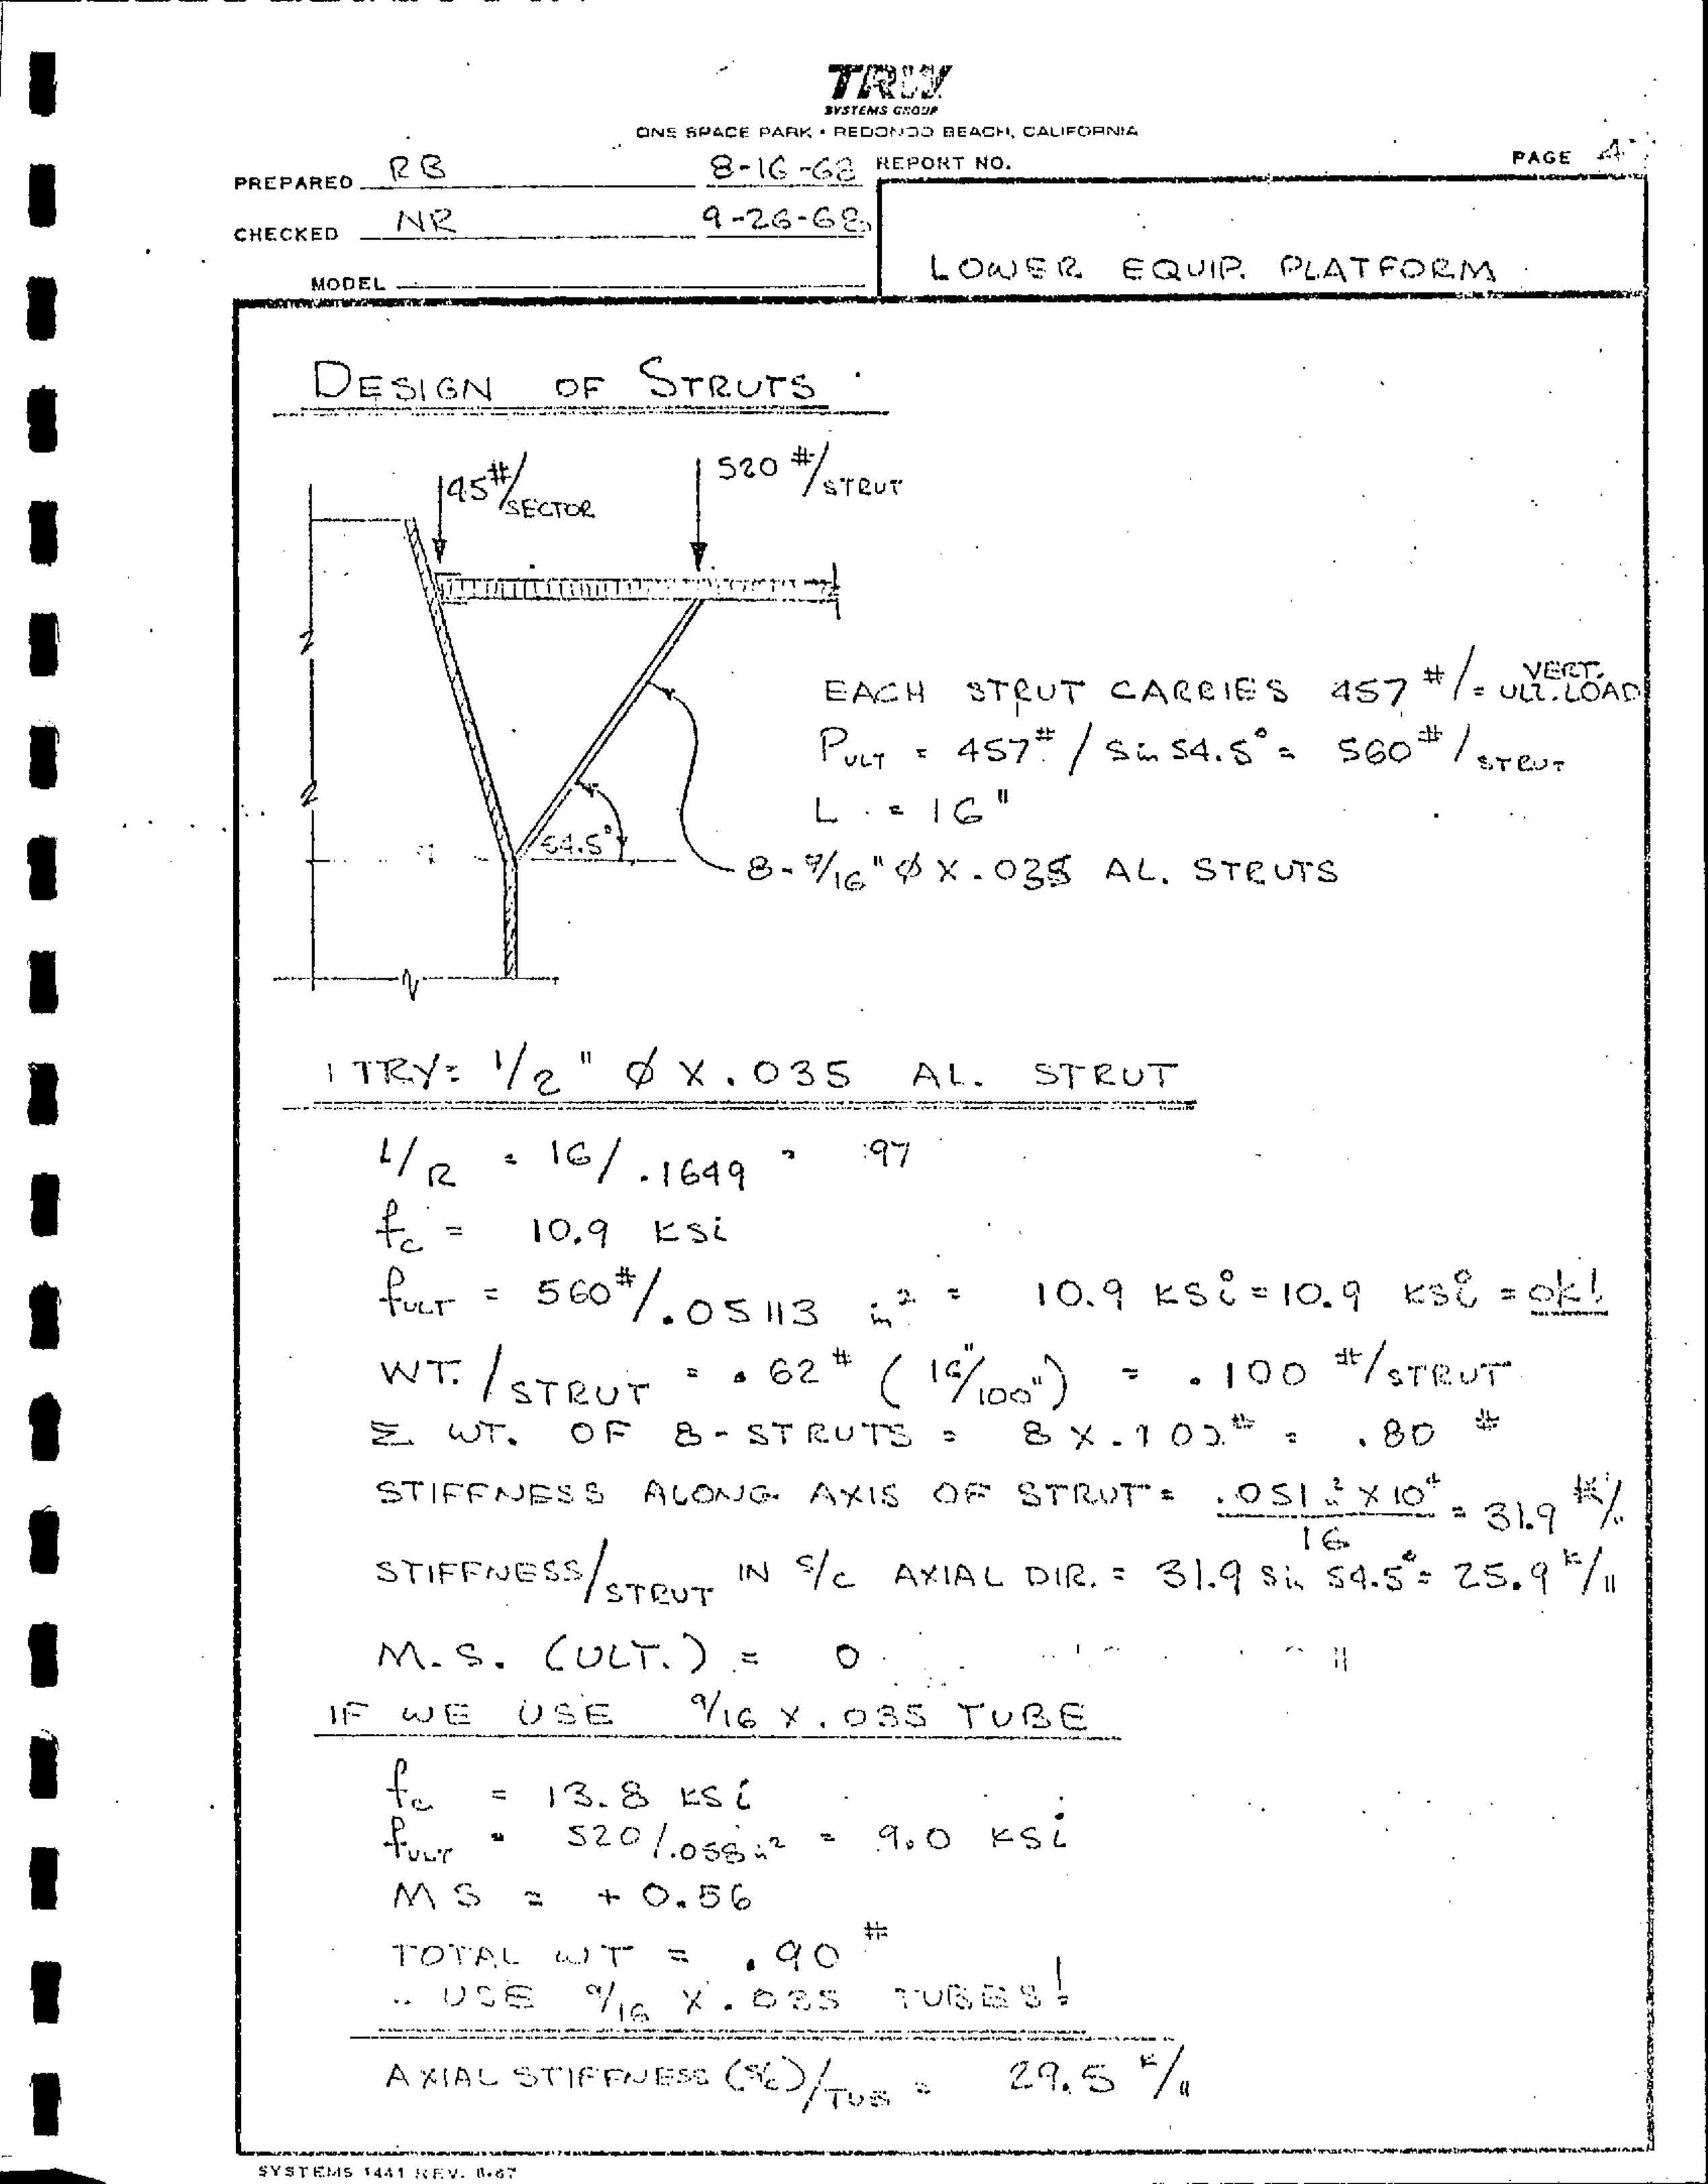 TRW
SYSTEMS GROUP
ONE SPACE PARK • REDONDO BEACH, CALIFORNIA
PREPARED RB 8-16-68 REPORT NO. PAGE 4
CHECKED NR 9-26-68
MODEL
LOWER EQUIP. PLATFORM
DESIGN OF STRUTS
95#/SECTOR
520 #/STRUT
EACH STRUT CARRIES 457 #/= VERT. ULT. LOAD
PULT = 457# / Sin 54.5° = 560 #/STRUT
L = 16"
54.5°
8 - 9/16" Ø X .035 AL. STRUTS
1 TRY: 1/2" Ø X .035 AL. STRUT
L/R = 16/.1649 = 97
fc = 10.9 KSi
fULT = 560#/.05113 in² = 10.9 KSi = 10.9 KSi = ok!
WT./STRUT = .62# (16"/100") = .100 #/STRUT
Σ WT. OF 8-STRUTS = 8 X .100# = .80 #
STIFFNESS ALONG AXIS OF STRUT = .051 in² X 10⁴ / 16 = 31.9 K/"
STIFFNESS/STRUT IN S/C AXIAL DIR. = 31.9 Sin 54.5° = 25.9 K/"
M.S. (ULT.) = 0
IF WE USE 9/16 X .035 TUBE
fc = 13.8 KSi
fULT = 520/.058 in² = 9.0 KSi
MS = + 0.56
TOTAL WT = .90 #
∴ USE 9/16 X .035 TUBES!
AXIAL STIFFNESS (S/C)/TUB = 29.5 K/"
SYSTEMS 1441 REV. 8-67